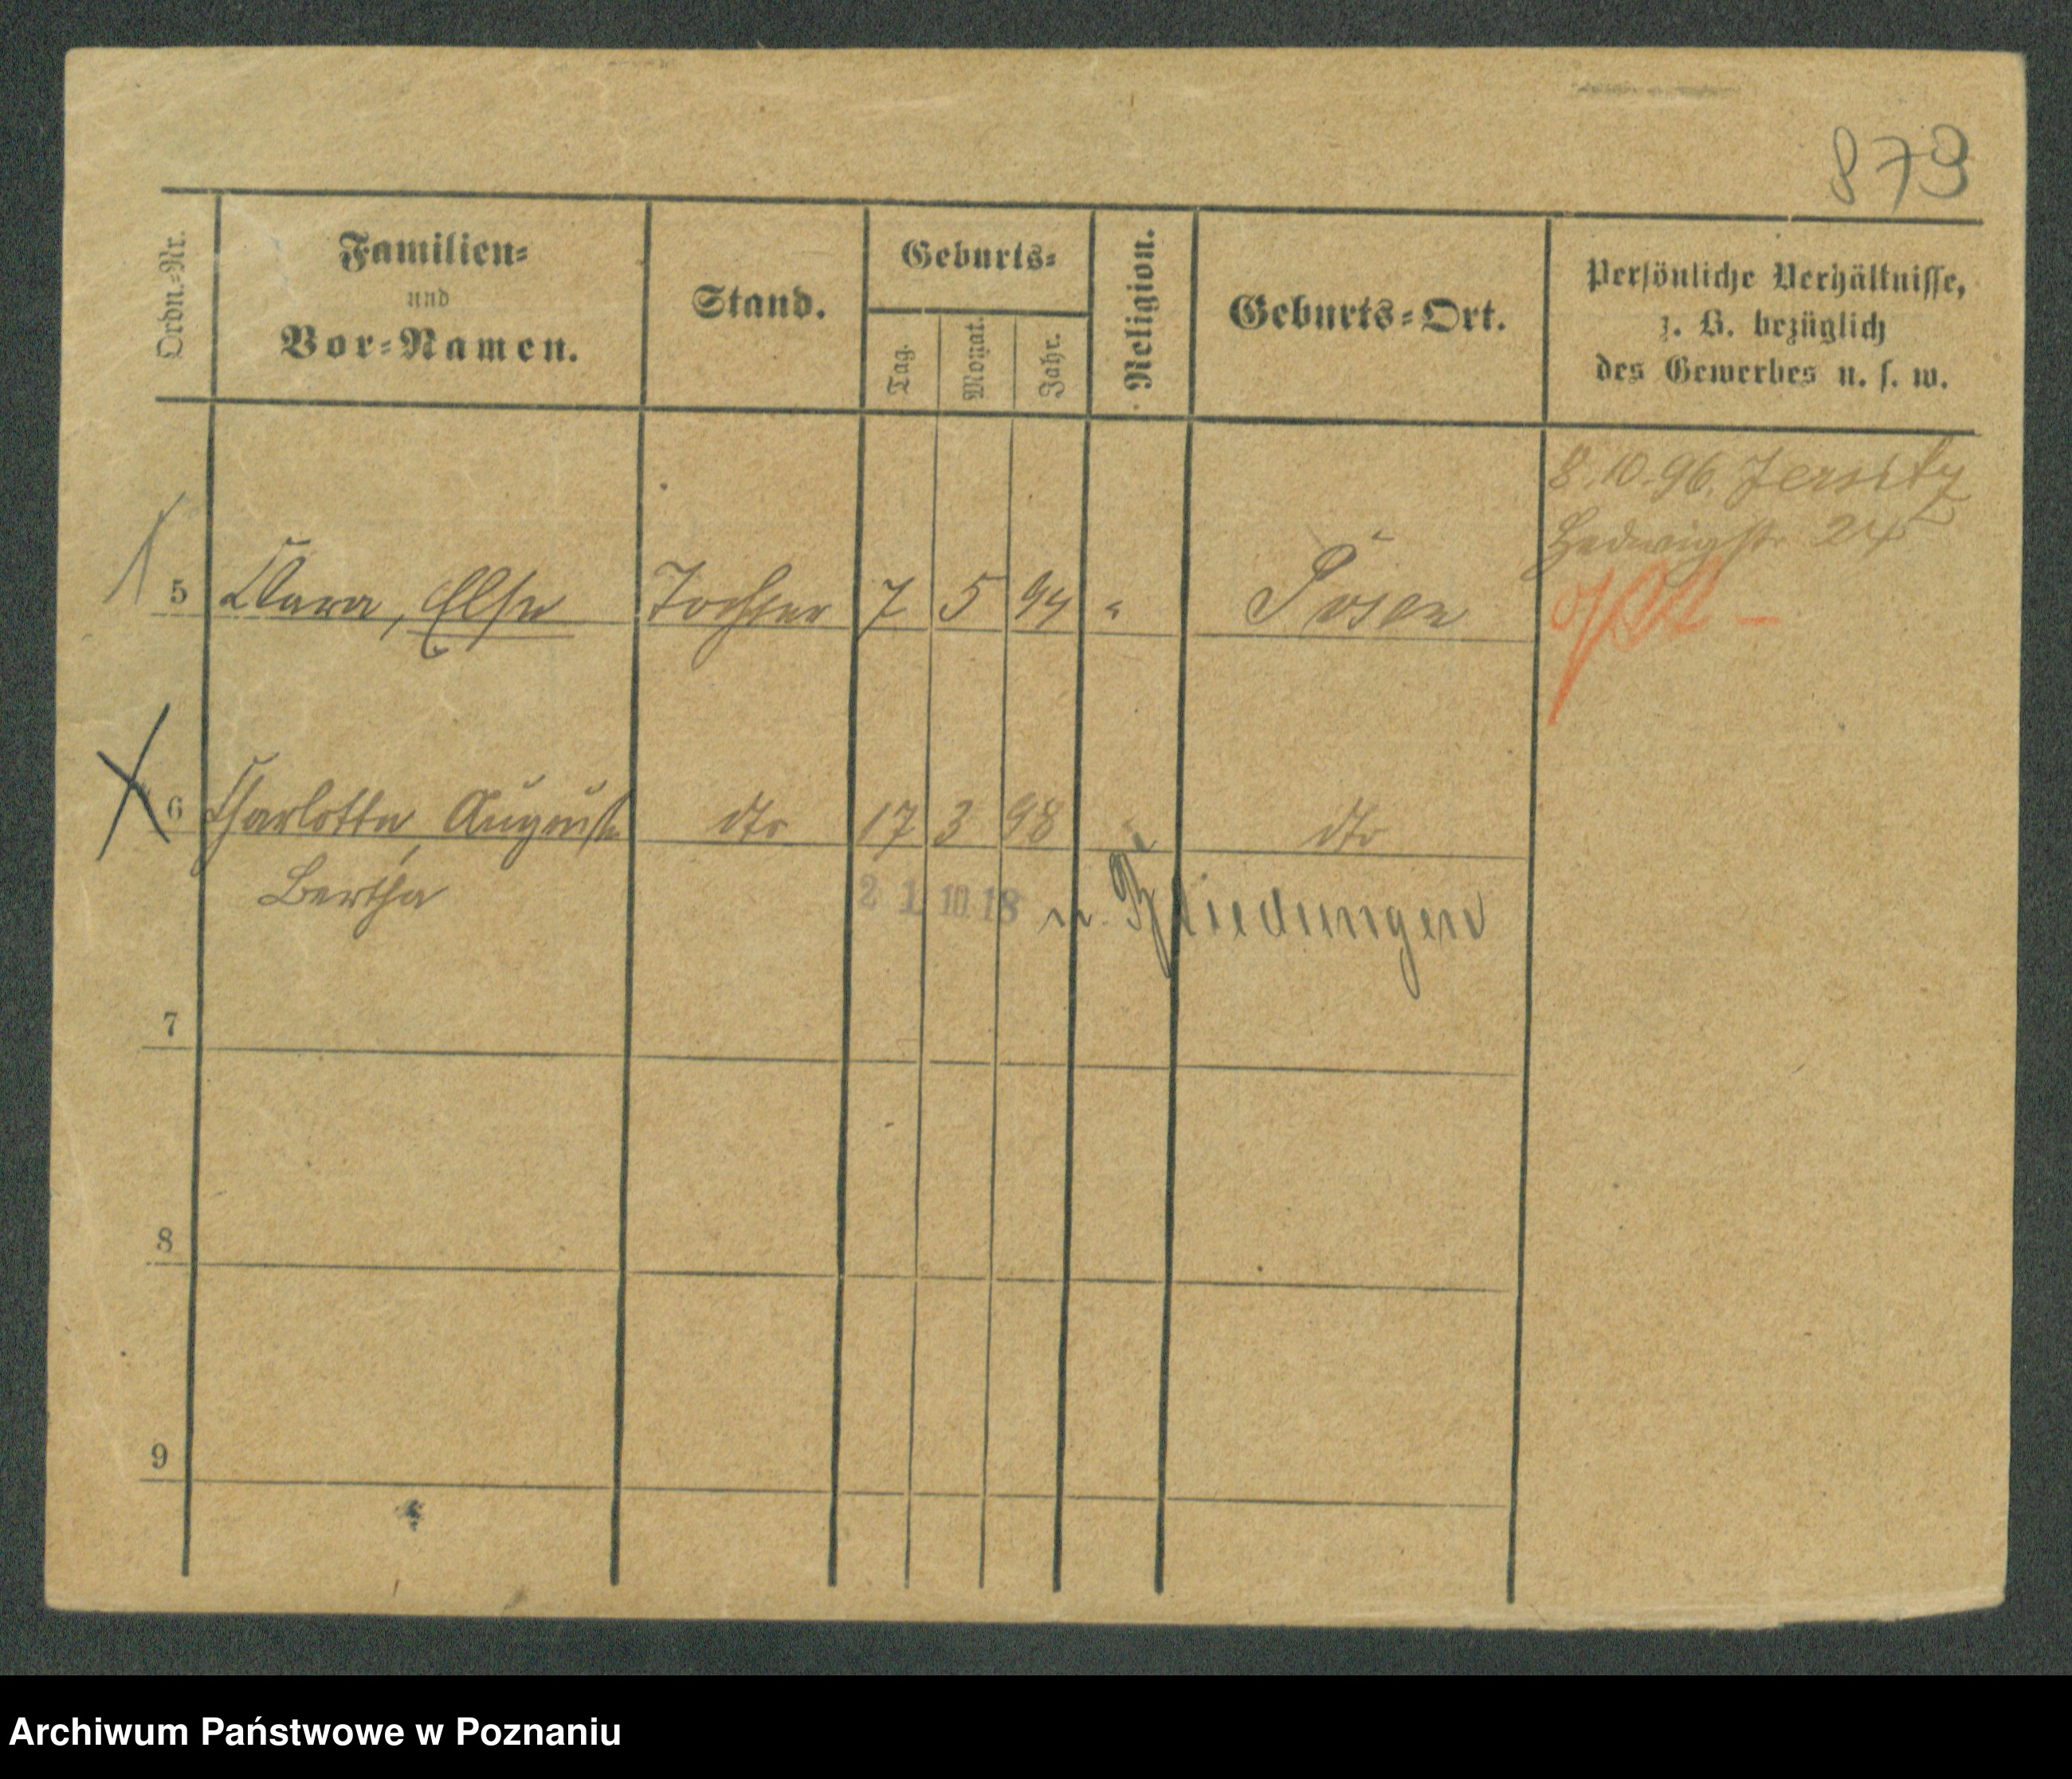 873
Ordn.-Nr.
Familien-
und
Vor-Namen.
Stand.
Geburts-
Tag.
Monat.
Jahr.
Religion.
Geburts-Ort.
Persönliche Verhältnisse,
z. B. bezüglich
des Gewerbes u. s. w.
8.10.96. Jersitz
Hedwigstr. 24
5 Clara, Else Tochter 7 5 94 " Posen
6 Charlotte, Auguste dto 17 3 98 " dto
Bertha
2 1. 10. 18 n.
7
8
9
Archiwum Państwowe w Poznaniu